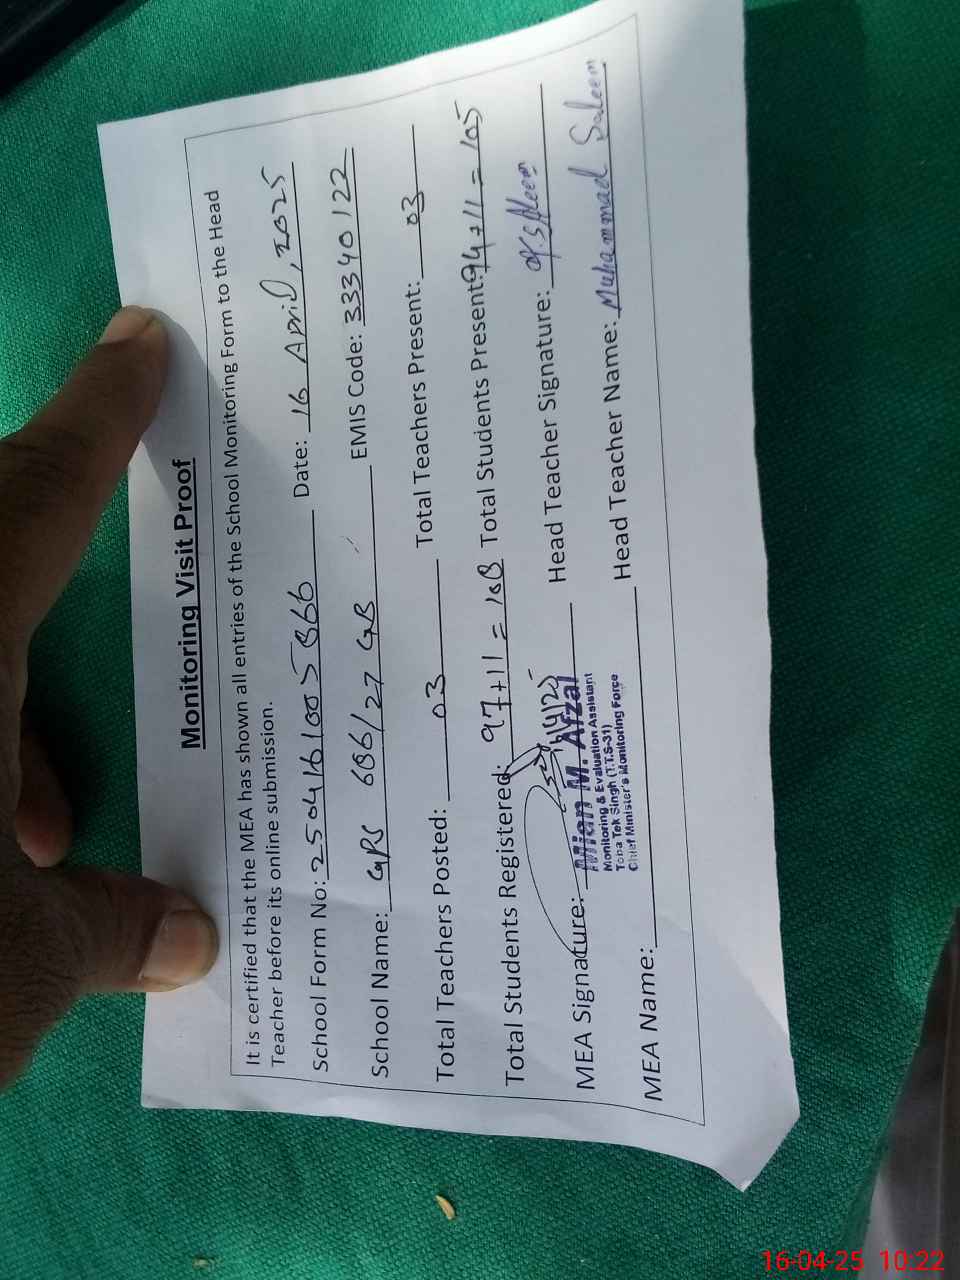 Monitoring Visit Proof
It is certified that the MEA has shown all entries of the School Monitoring Form to the Head
Teacher before its online submission.
School Form No: 2504161005866 Date: 16 April, 2025
School Name: GPS 686/27 GB EMIS Code: 33340122
Total Teachers Posted: 03 Total Teachers Present: 03
Total Students Registered: 97+11 = 108 Total Students Present: 94+11 = 105
MEA Signature: Head Teacher Signature: M.Saleem
Mian M. Afzal
Monitoring & Evaluation Assistant
Toba Tek Singh (T.T.S-31)
Chief Minister's Monitoring Force
MEA Name: Head Teacher Name: Muhammad Saleem
16-04-25 10:22